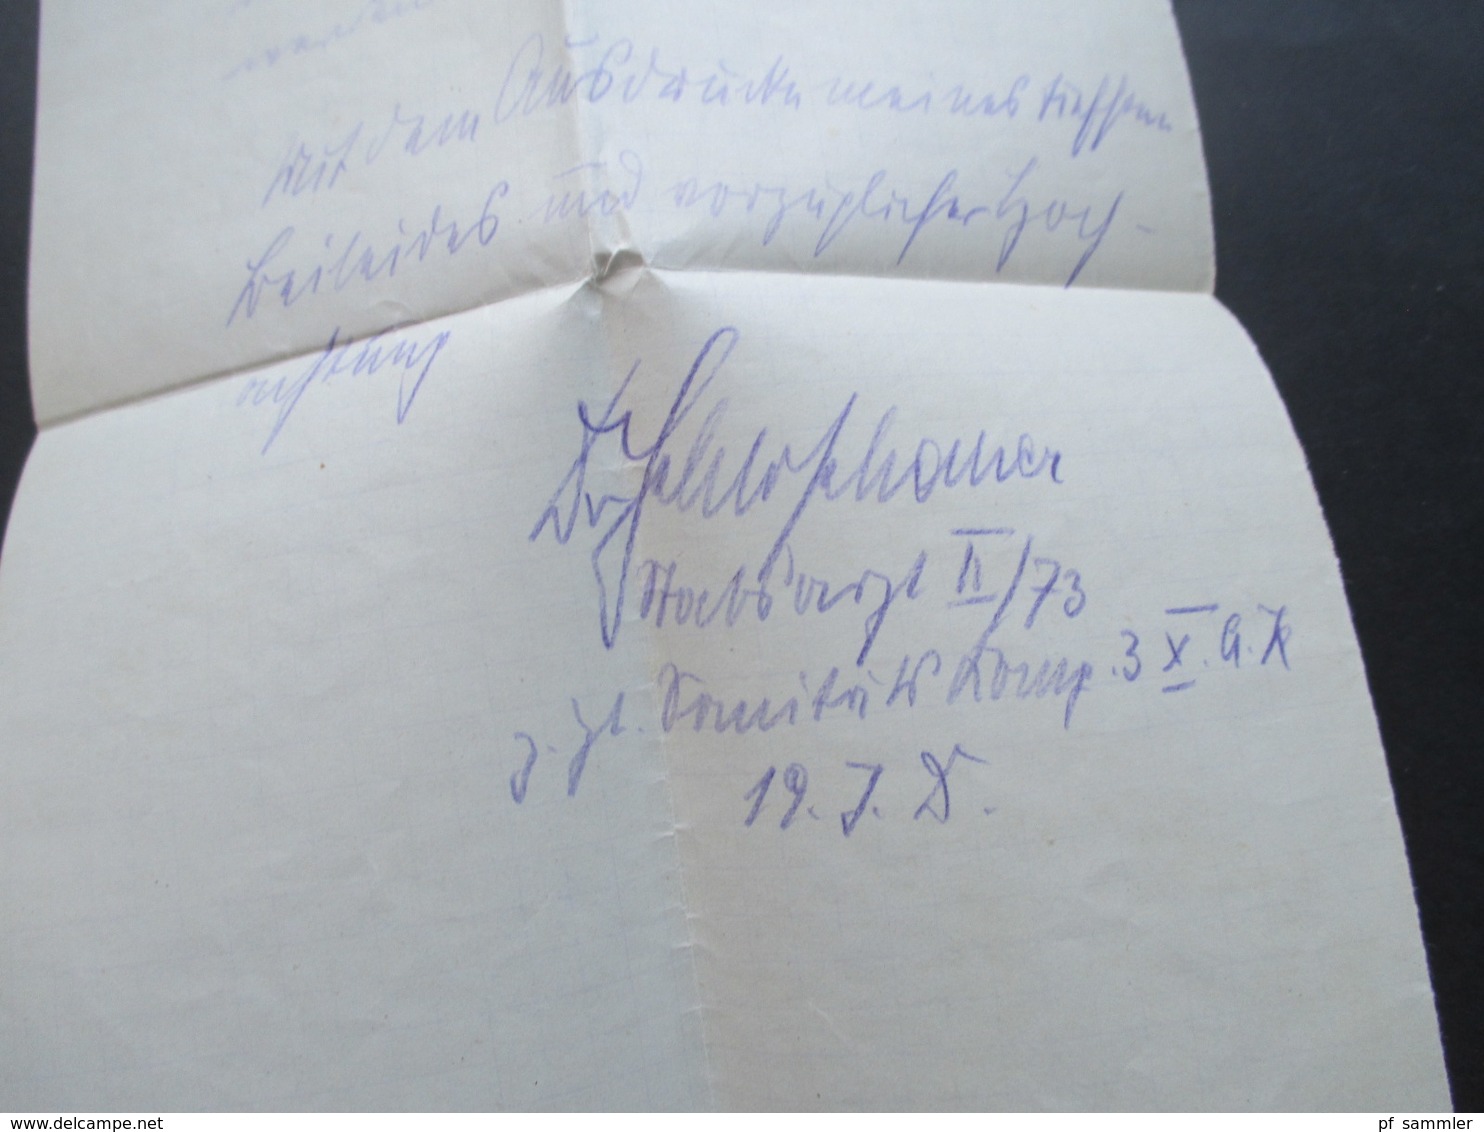 werden
Mit dem Ausdrucke meines tiefsten
Beileides und vorzüglicher Hoch-
achtung
Dr. Schlosshauer
Stabsarzt II/73
z. Zt. Sanitäts Komp. 3 X. A. K
19. J. D.
pf_sammler
www.delcampe.net